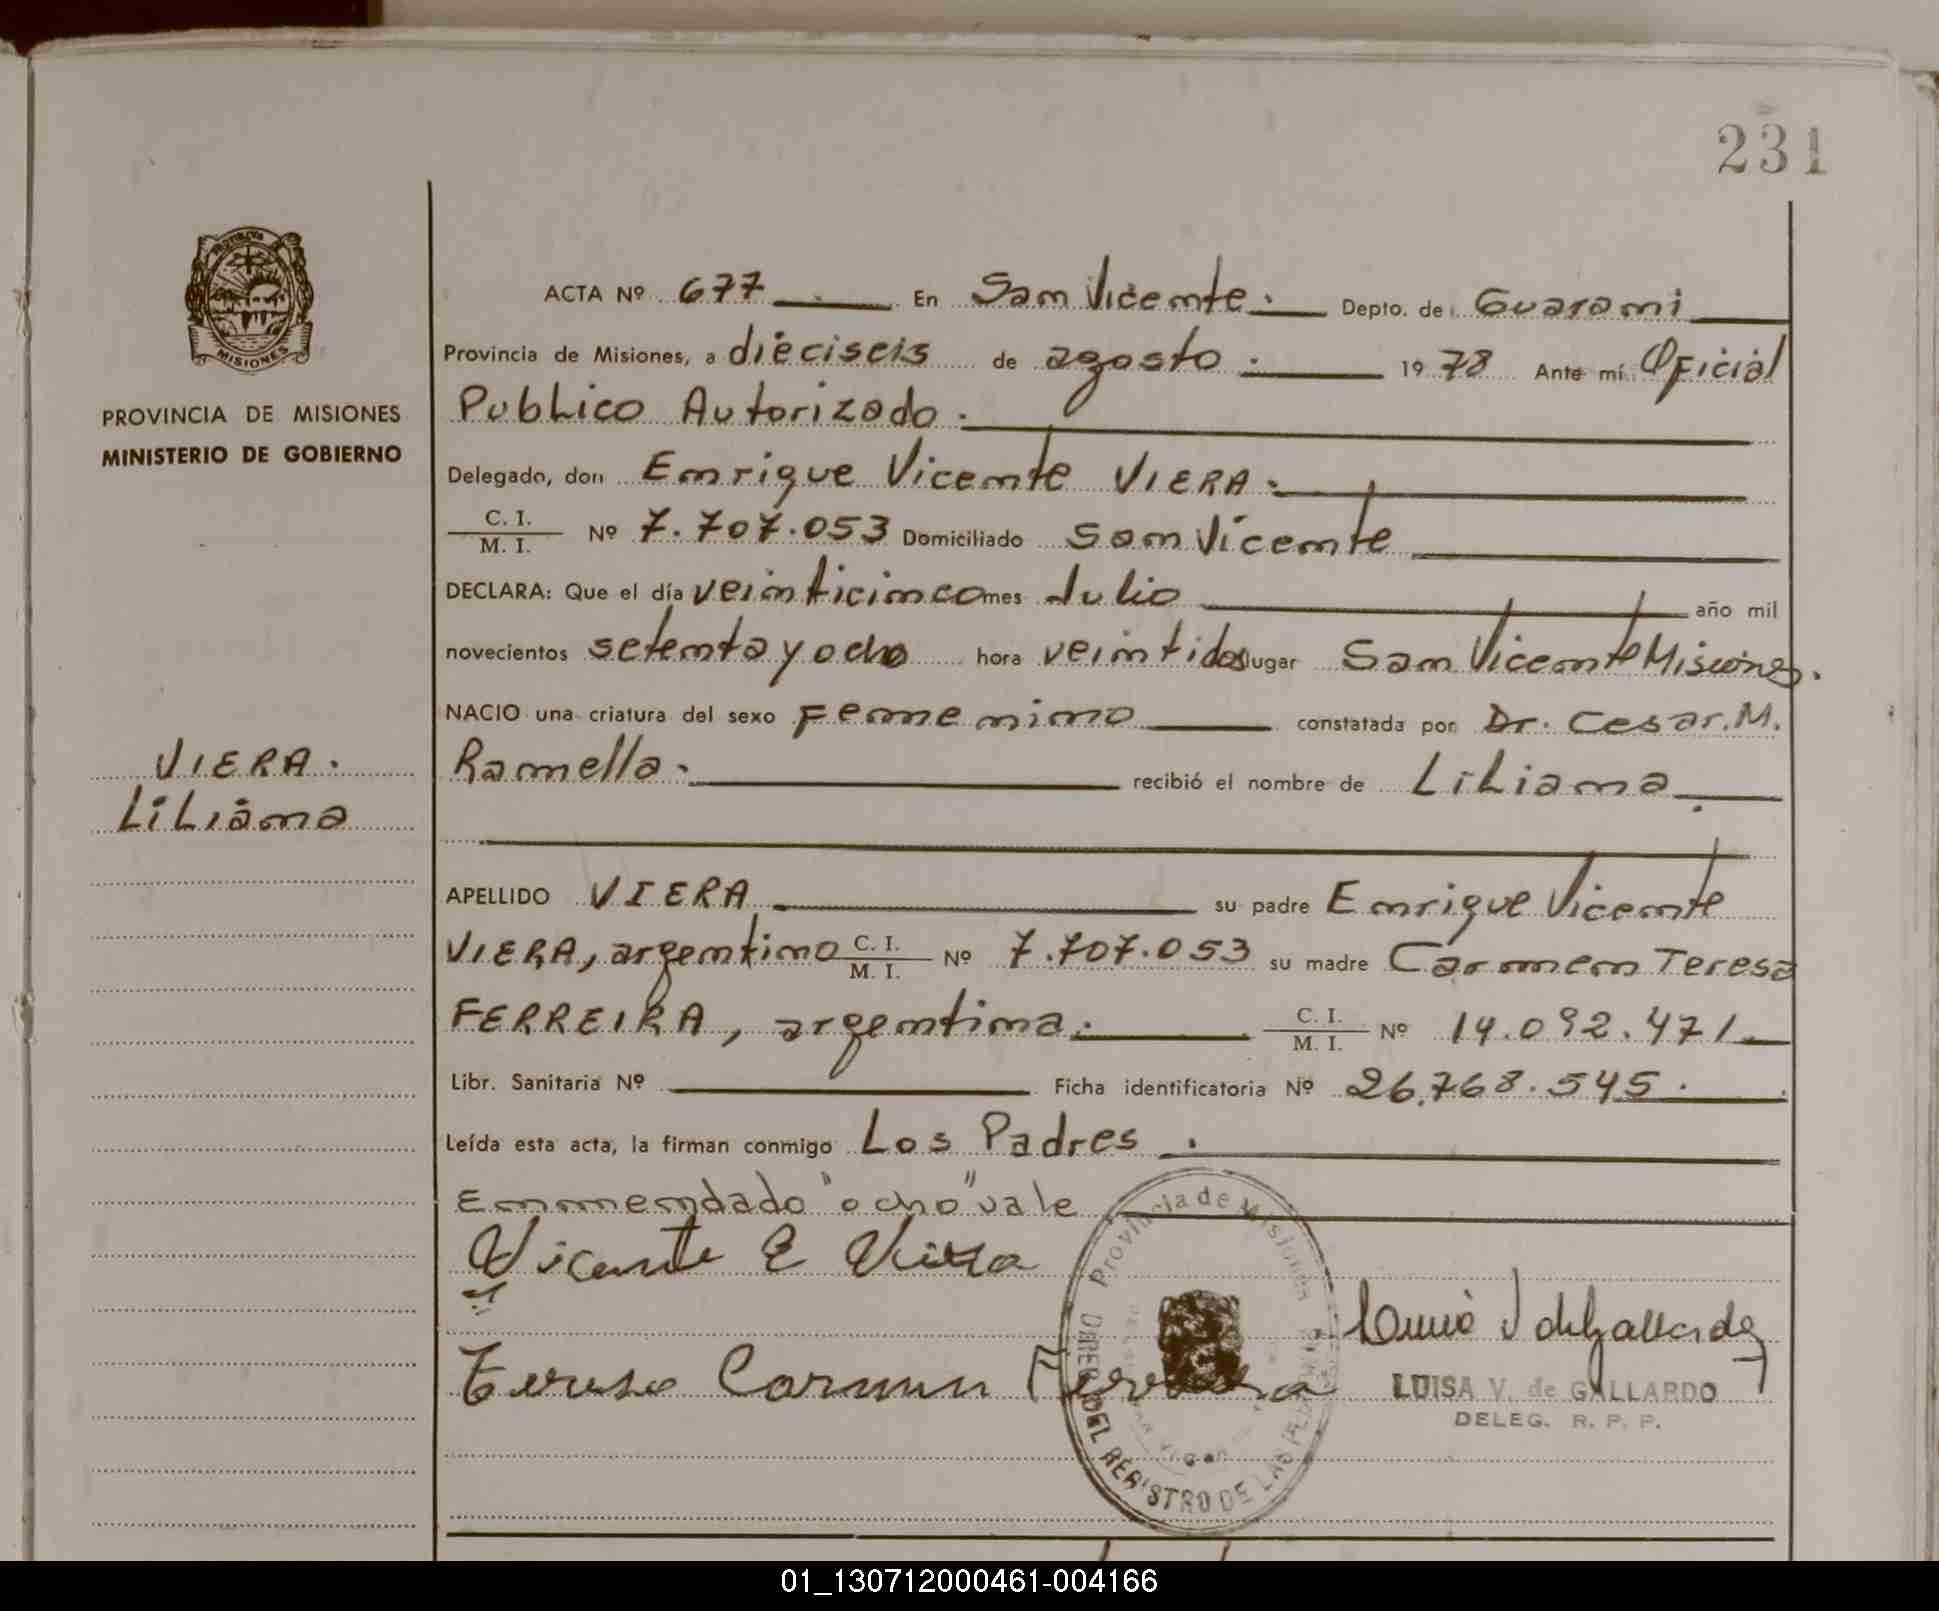 231
MISIONES
PROVINCIA DE MISIONES
MINISTERIO DE GOBIERNO
VIERA.
Liliana
ACTA Nº 677 En San Vicente. Depto. de Guarani
Provincia de Misiones, a dieciseis de agosto 1978 Ante mí Oficial
Publico Autorizado.
Delegado, don Enrique Vicente VIERA.
C. I. / M. I. Nº 7.707.053 Domiciliado San Vicente
DECLARA: Que el día veinticinco mes Julio año mil
novecientos setenta y ocho hora veintidos lugar San Vicente Misiones.
NACIO una criatura del sexo Femenino constatada por Dr. Cesar. M.
Ramella. recibió el nombre de Liliana.
APELLIDO VIERA su padre Enrique Vicente
VIERA, argentino C. I. / M. I. Nº 7.707.053 su madre Carmen Teresa
FERREIRA, argentina. C. I. / M. I. Nº 14.092.471
Libr. Sanitaria Nº Ficha identificatoria Nº 26.768.545.
Leída esta acta, la firman conmigo Los Padres.
Enmendado "ocho" vale
Vicente E Viera
Teresa Carmen Ferreira
Provincia de Misiones
DEL REGISTRO DE LAS
LUISA V. de GALLARDO
DELEG. R. P. P.
01_130712000461-004166